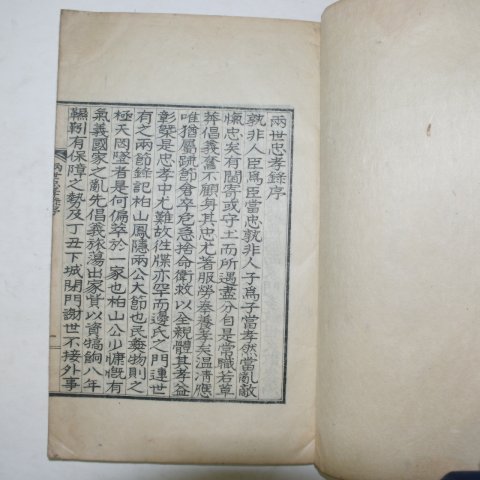 兩世忠孝錄序
孰非人臣爲臣當忠孰非人子爲子當孝然當亂敵
愾忠矣有閫寄或守土而所遇盡分自是常職若草
莽倡義奮不顧身其忠尤著服勞奉養孝矣溫凊應
唯猶屬疏節倉卒危急捨命衛救以全親體其孝益
彰槩是忠孝中尤難故徃牒亦罕而邊氏之門連世
有之兩節錄記柏山鳳隱兩公大節也民彝物則之
極天罔墜者是何偏萃於一家也柏山公少慷慨有
氣義國家之亂先倡義旅蕩出家貲以資犒餉八年
羈靮有保障之勢及丁丑下城閉門謝世不接外事
兩世忠孝錄序
一